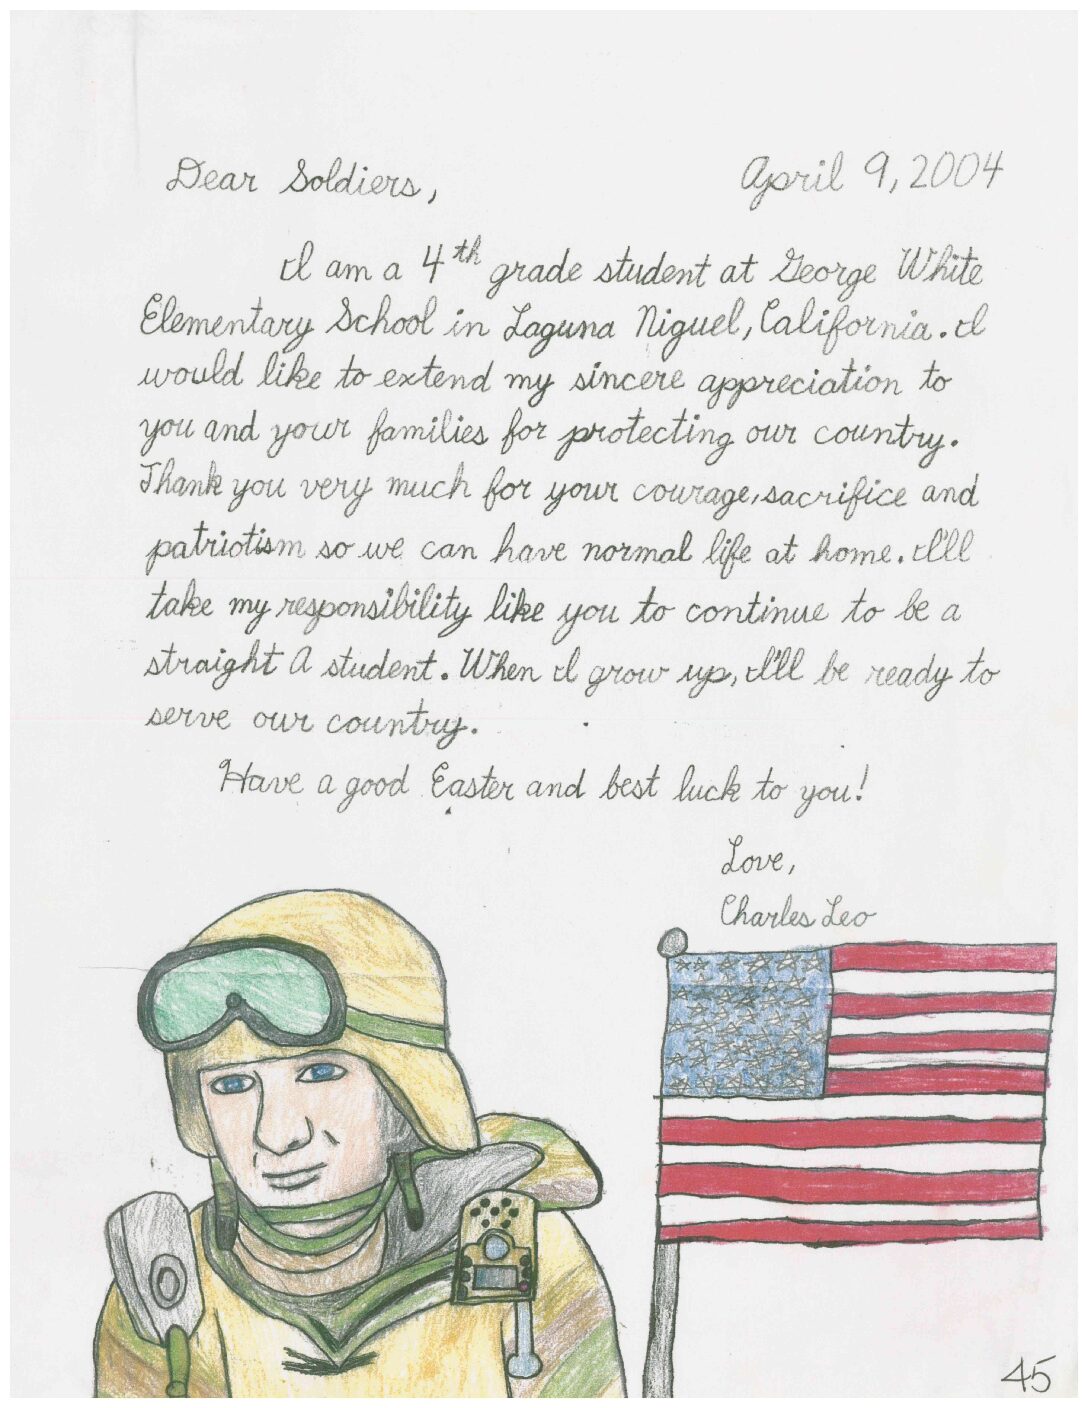 Dear Soldiers, April 9, 2004
I am a 4th grade student at George White
Elementary School in Laguna Niguel, California. I
would like to extend my sincere appreciation to
you and your families for protecting our country.
Thank you very much for your courage, sacrifice and
patriotism so we can have normal life at home. I'll
take my responsibility like you to continue to be a
straight A student. When I grow up, I'll be ready to
serve our country.
Have a good Easter and best luck to you!
Love,
Charles Leo
45